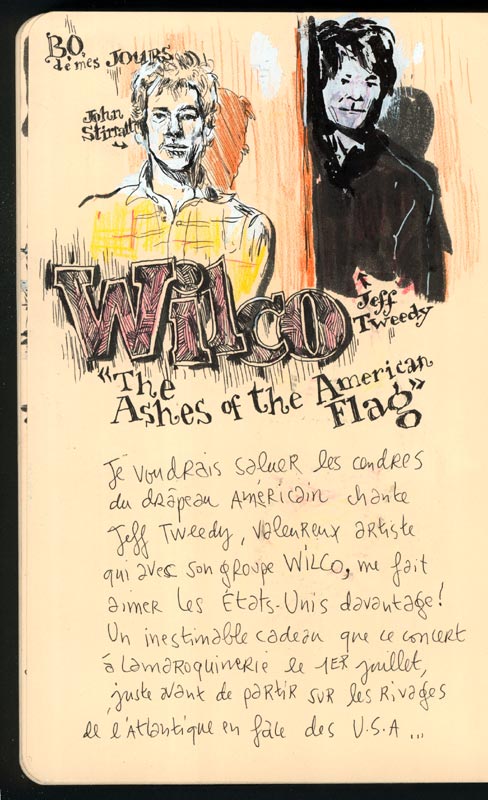 B.O.
de mes JOURS
John
Stirratt
Wilco
Jeff
Tweedy
"The
Ashes of the American
Flag"
Je voudrais saluer les cendres
du drâpeau Américain chante
Jeff Tweedy, valeureux artiste
qui avec son groupe WILCO, me fait
aimer les États-Unis davantage!
Un inestimable cadeau que ce concert
à Lamaroquinerie le 1ER juillet,
juste avant de partir sur les Rivages
de l'Atlantique en face des U.S.A...